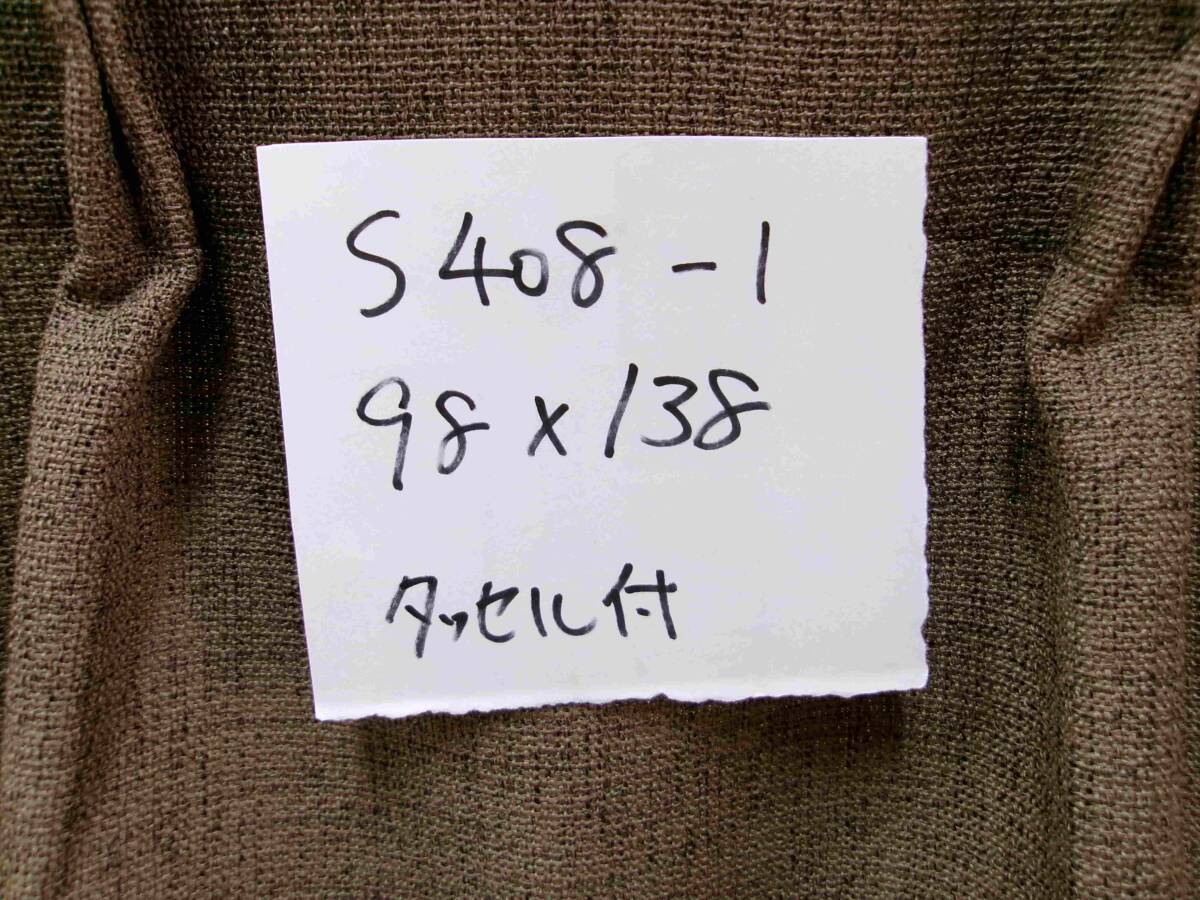 S408-1
98×138
タッセル付